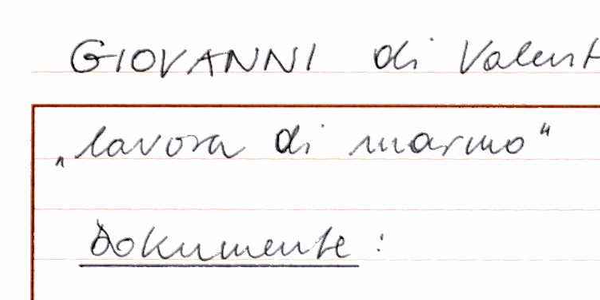 GIOVANNI di Valent
„lavora di marmo“
Dokumente: